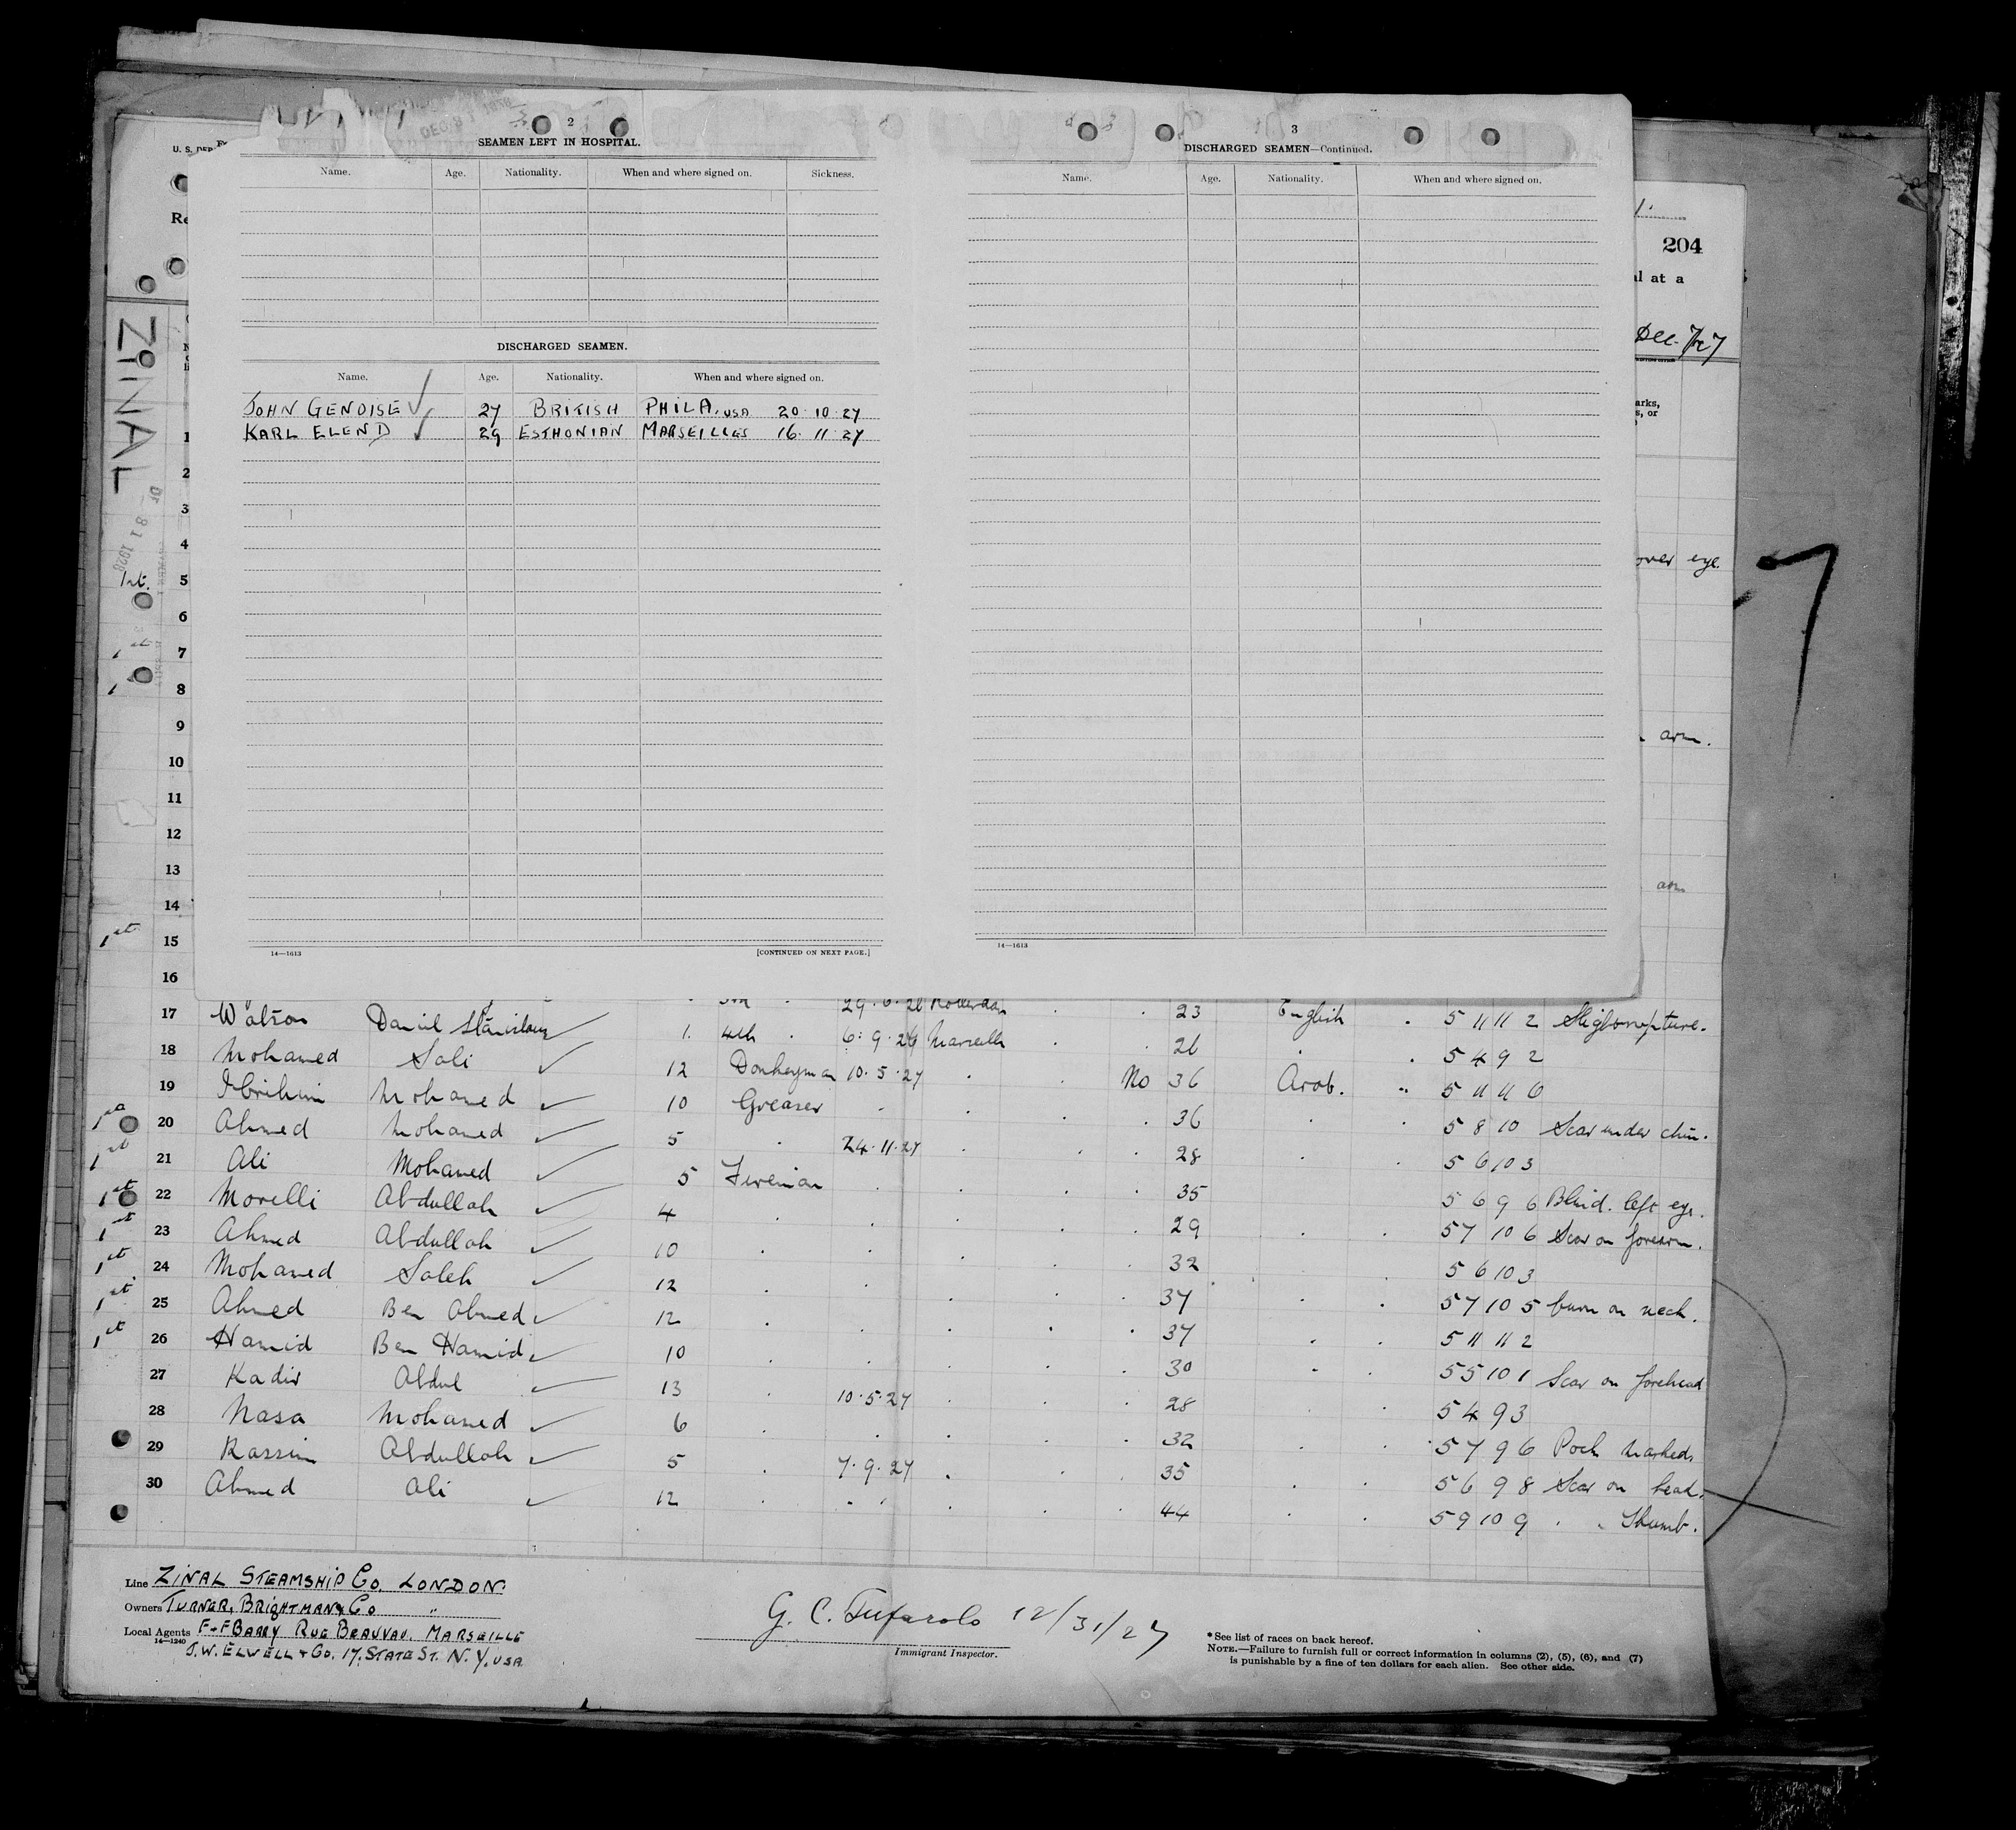 2
SEAMEN LEFT IN HOSPITAL.
Name. Age. Nationality. When and where signed on. Sickness.
DISCHARGED SEAMEN.
Name. Age. Nationality. When and where signed on.
JOHN GENOISE 27 BRITISH PHILA, USA 20·10·27
KARL ELEND 29 ESTHONIAN MARSEILLES 16·11·27
14—1613 [CONTINUED ON NEXT PAGE.]
3
DISCHARGED SEAMEN—Continued.
Name. Age. Nationality. When and where signed on.
14—1613
204
al at a
Dec.
arks,
s, or
over eye.
arm.
arm
7
U. S. DEP
Re
ZINAL
1
2
3
4
1st. 5
6
7
8
9
10
11
12
13
14
1st 15
16
17 Watson Daniel Stanislaus 1. 4th 6·9·26 Marseille 23 English 5 11 11 2
18 Mohamed Sali 12 Donkeyman 10·5·27 No 36 Arab. 5 4 9 2
19 Ibrihim Mohamed 10 Greaser 36
20 Ahmed Mohamed 5 24·11·27 28 5 8 10 Scar under chin.
1st 21 Ali Mohamed 5 Fireman 35 5 6 10 3
1st 22 Morelli Abdullah 4 29 5 6 9 6 Blind. left eye.
1st 23 Ahmed Abdullah 10 32 5 7 10 6 Scar on forearm.
1st 24 Mohamed Saleh 12 37 5 6 10 3
1st 25 Ahmed Ben Ahmed 12 37 5 7 10 5 burn on neck.
1st 26 Hamid Ben Hamid 10 30 5 11 11 2
27 Kadir Abdul 13 10·5·27 28 5 5 10 1 Scar on forehead
28 Nasa Mohamed 6 32 5 4 9 3
29 Kassim Abdullah 5 7·9·27 35 5 7 9 6 Pock marked.
30 Ahmed Ali 12 44 5 6 9 8 Scar on head.
5 9 10 9 Thumb.
Line ZINAL STEAMSHIP Co. LONDON.
Owners TURNER, BRIGHTMAN & Co "
Local Agents F+F BARRY RUE BEAUVAU. MARSEILLE
14—1240
J.W. ELWELL + Co. 17, STATE ST. N.Y. USA
G. C. Tufarolo 12/31/27
Immigrant Inspector.
*See list of races on back hereof.
NOTE.—Failure to furnish full or correct information in columns (2), (5), (6), and (7)
is punishable by a fine of ten dollars for each alien. See other side.